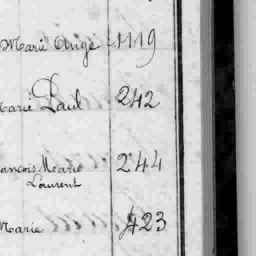 Marie Ange 1119
Marie Paul 242
François Marie 244
Laurent
Marie 423